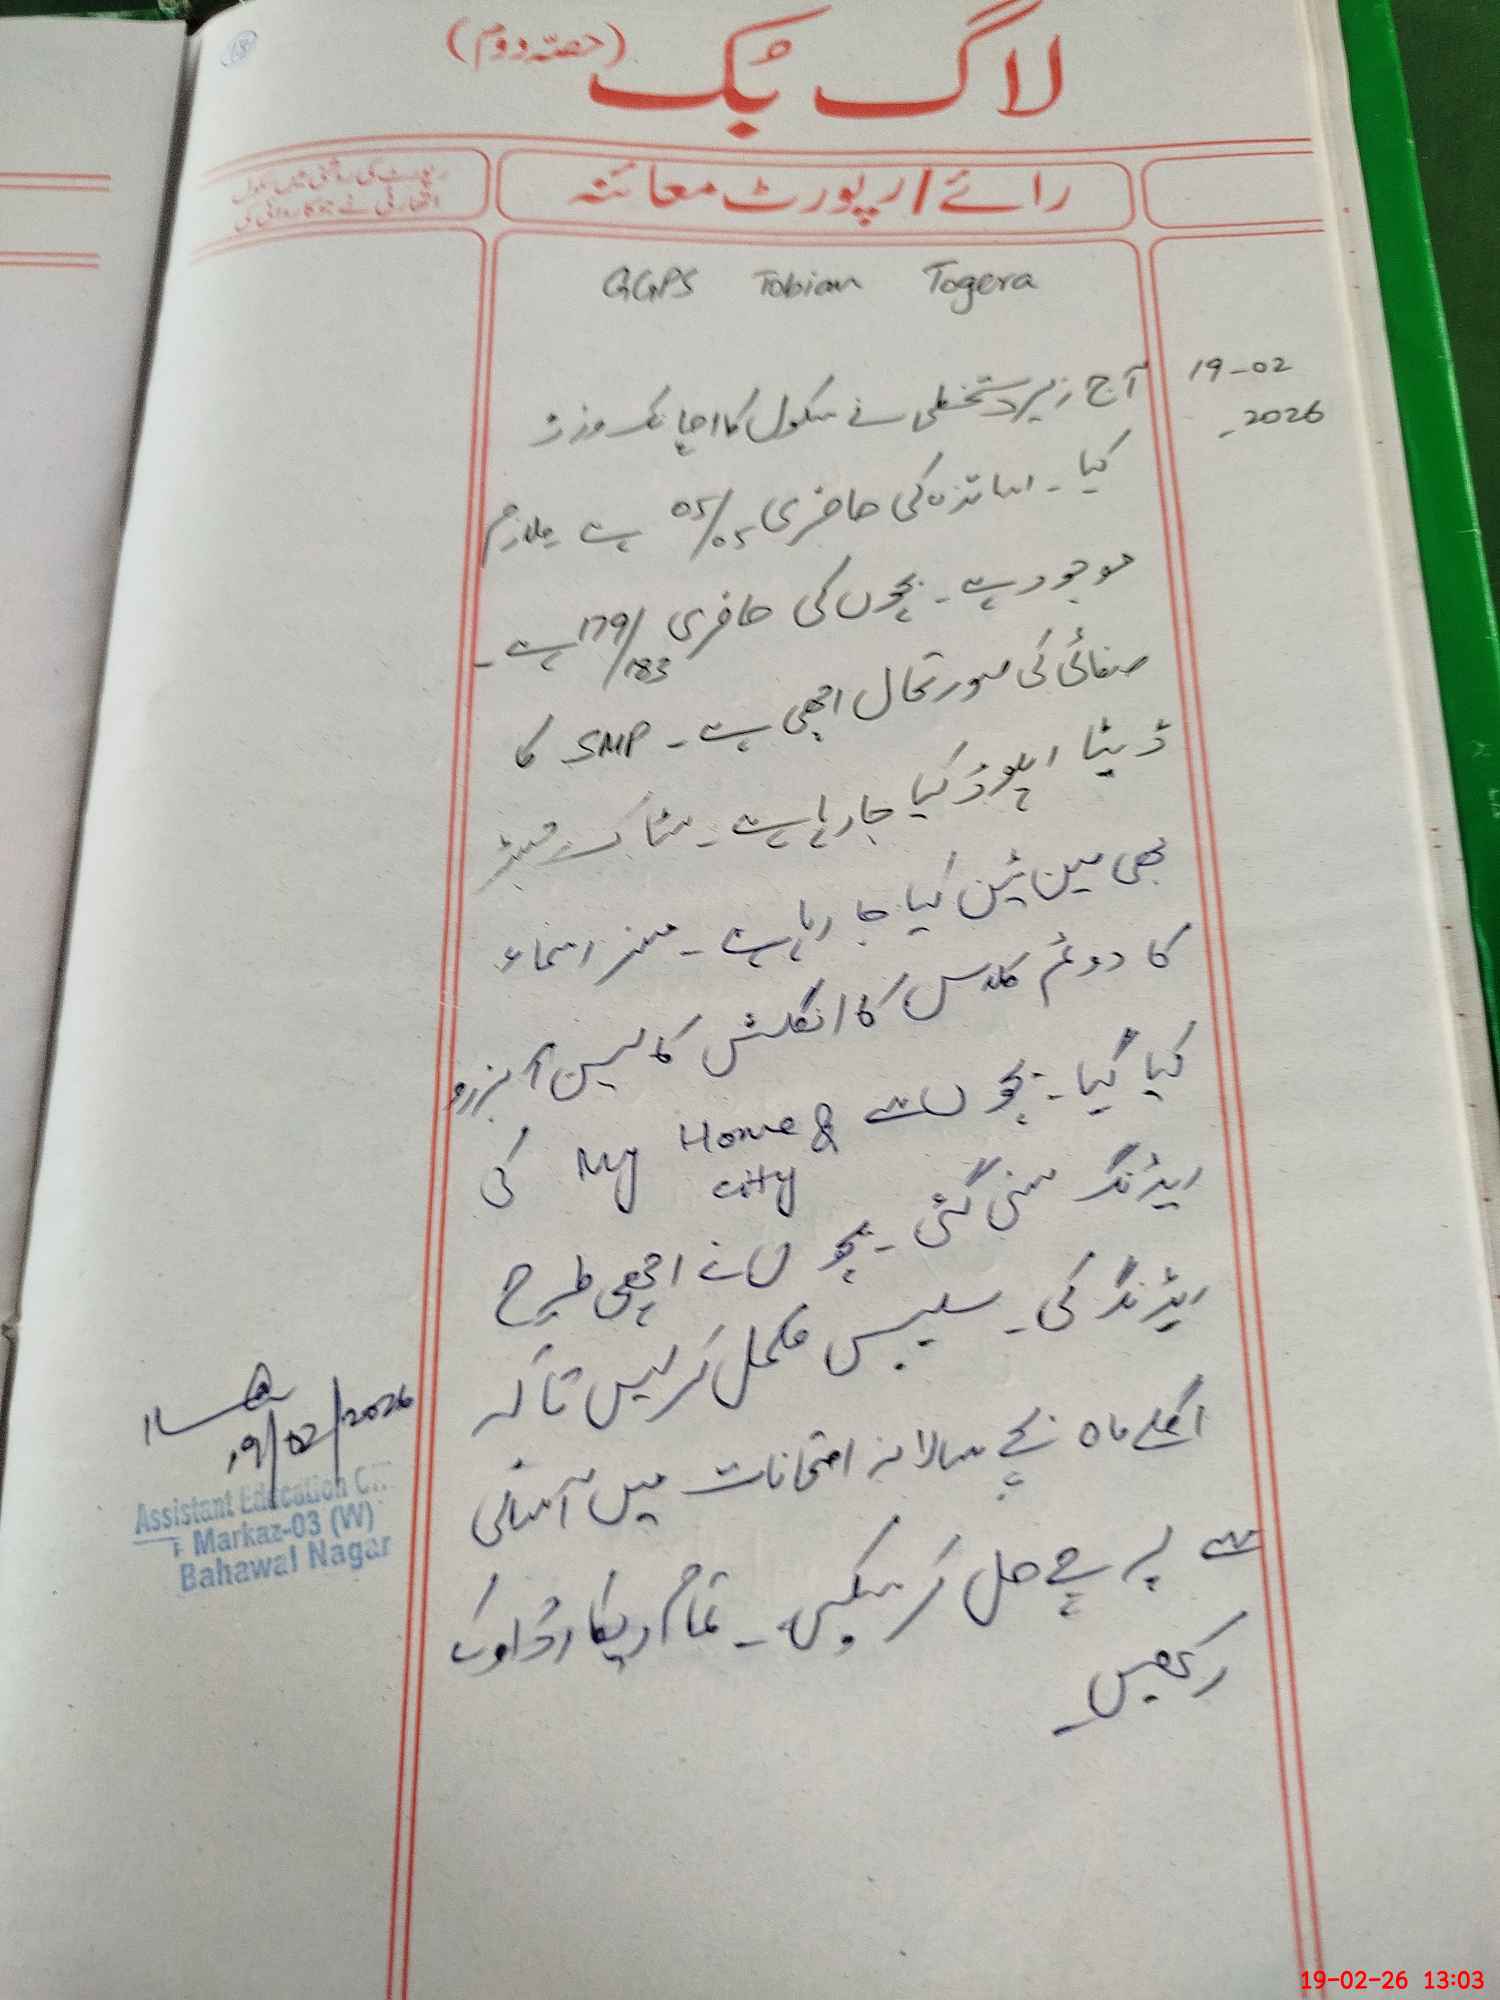 18
لاگ بک (حصہ دوم)
رائے/رپورٹ معائنہ
رپورٹ کی روشنی میں سکول
اتھارٹی نے جو کاروائی کی
GGPS Tobian Togera
19-02
-2026
آج زیر دستخطی نے سکول کا اچانک وزٹ
کیا۔ اساتذہ کی حاضری 05/05 ہے ملازم
موجود ہے۔ بچوں کی حاضری 179/183 ہے۔
صفائی کی صورتحال اچھی ہے۔ SMP کا
ڈیٹا اپلوڈ کیا جا رہا ہے۔ سٹاک رجسٹر
بھی مین ٹین کیا جا رہا ہے۔ مسز اسماء
کا دوئم کلاس کا انگلش کا لیسن آبزرو
کیا گیا۔ بچوں سے My Home & city کی
ریڈنگ سنی گئی۔ بچوں نے اچھی طرح
ریڈنگ کی۔ سلیبس مکمل کر لیں تاکہ
اگلے ماہ بچے سالانہ امتحانات میں آسانی
سے پرچے حل کر سکیں۔ تمام ریکارڈ اوکے
رکھیں۔
19/02/2026
Assistant Education
Markaz-03 (W)
Bahawal Nagar
19-02-26 13:03